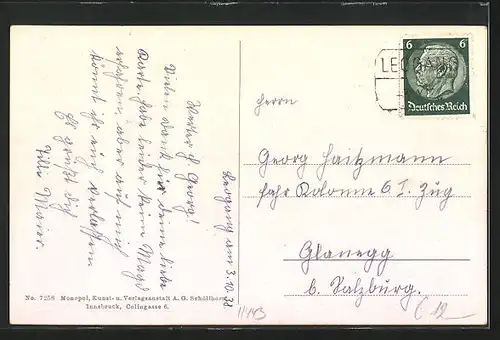 Leogang am 3.10.38
Werter H. Georg!
Vielen Dank für deine liebe
Karte. Habe leider keine Magd
erfahren, aber auf mich
könnt ihr euch verlassen.
Es grüßt dich
Maier.
6 6
LEOGANG
Deutsches Reich
Herrn
Georg Haitzmann
Fahr Kolonne 6 I. Zug
Glanegg
b. Salzburg.
No. 7258 Monopol, Kunst- u. Verlagsanstalt A. G. Schöllhorn
Innsbruck, Colingasse 6.
11445
C 12